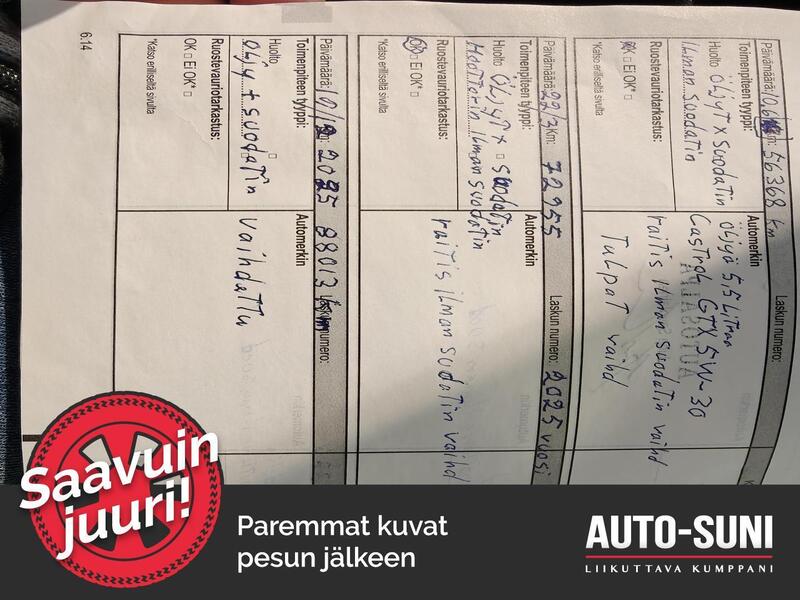 Päivämäärä: 10.6 Km: 56368 km
Toimenpiteen tyyppi:
Automerkin
Huolto öljyt x suodatin
ilman suodatin
öljyä 5,5 Litraa
Castrol GTX 5W-30
raitis ilman suodatin vaihd
Tulpat vaihd
Ruostevauriotarkastus:
OK □ Ei OK* □
*Katso erilliseltä sivulta
Päivämäärä: 22/3 Km: 72955
Laskun numero: 2025 vuosi
Toimenpiteen tyyppi:
Automerkin
Huolto öljyt x suodatin
Moottorin ilman suodatin
raitis ilman suodatin vaihd
Ruostevauriotarkastus:
OK □ Ei OK* □
*Katso erilliseltä sivulta
Päivämäärä: 10/12 2025 88013 km
Laskun numero:
Toimenpiteen tyyppi:
Automerkin
Huolto
öljy + suodatin
vaihdattu
Ruostevauriotarkastus:
OK □ Ei OK* □
*Katso erilliseltä sivulta
6.14
Saavuin
juuri!
Paremmat kuvat
pesun jälkeen
AUTO-SUNI
LIIKUTTAVA KUMPPANI